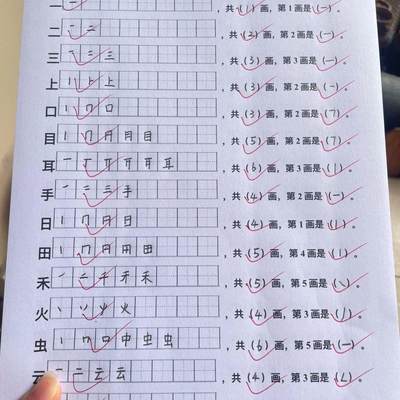 一 一 ，共（1）画，第1画是（一）。
二 一 二 ，共（2）画，第2画是（一）。
三 一 二 三 ，共（3）画，第3画是（一）。
上 丨 卜 上 ，共（3）画，第2画是（一）。
口 丨 冂 口 ，共（3）画，第2画是（㇕）。
目 丨 冂 月 月 目 ，共（5）画，第2画是（㇕）。
耳 一 丅 丌 耳 ，共（6）画，第3画是（丨）。
手 一 二 三 手 ，共（4）画，第2画是（一）。
日 丨 冂 月 日 ，共（4）画，第1画是（丨）。
田 丨 冂 月 用 田 ，共（5）画，第4画是（丨）。
禾 一 二 千 禾 禾 ，共（5）画，第5画是（㇏）。
火 丶 丷 火 ，共（4）画，第3画是（丿）。
虫 丨 冂 口 中 虫 虫 ，共（6）画，第5画是（一）。
云 一 二 云 云 ，共（4）画，第3画是（㇜）。